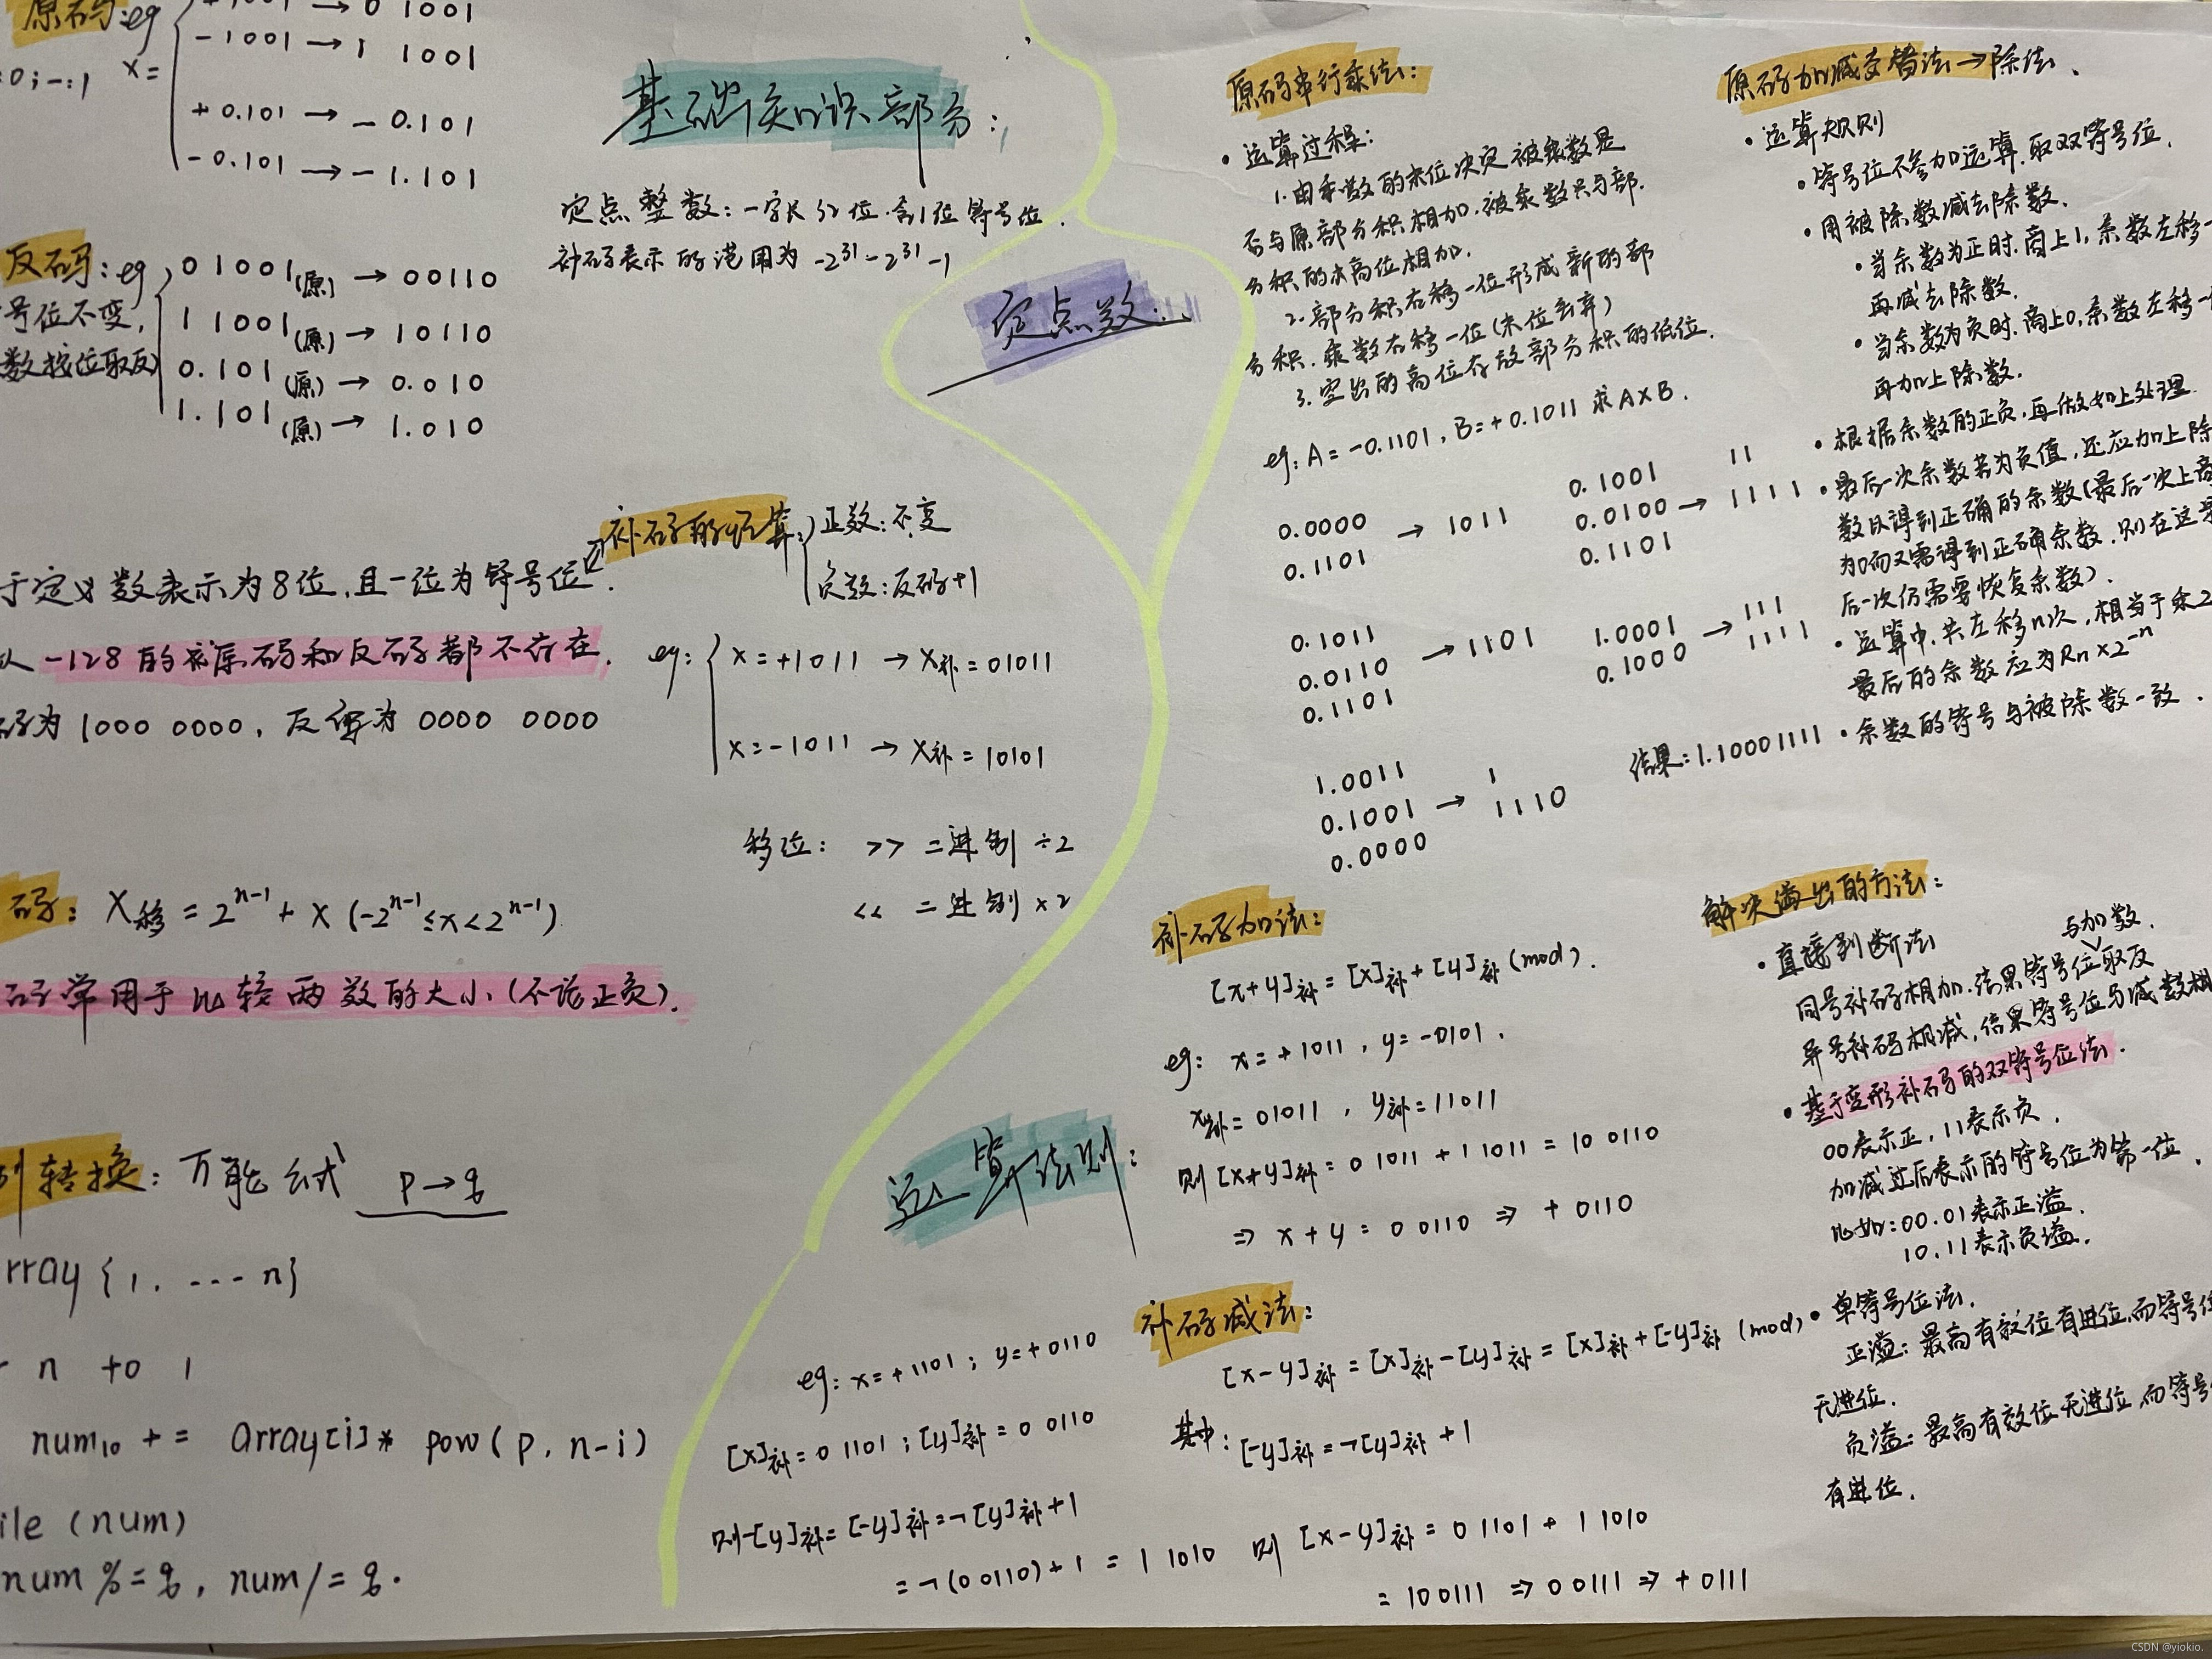 原码:eg
+1001 → 0 1001
-1001 → 1 1001
=0;-:1 x=
+0.101 → - 0.101
-0.101 → - 1.101
反码:eg
01001(原) → 00110
号位不变,
11001(原) → 10110
数按位取反
0.101(原) → 0.010
1.101(原) → 1.010
于定义数表示为8位,且一位为符号位.
-128的 原码和反码都不存在.
码为1000 0000,反 为0000 0000
码: X移 = 2^n-1 + X (-2^n-1 ≤ x < 2^n-1)
码常用于比较两数的大小(不论正负).
转换: 万能公式 p→q
rray {1. ---- n}
n to 1
num10 += array[i]* pow(p, n-i)
ile (num)
num %= q, num /= q.
基础知识部分:
定点整数:一字长32位.含1位符号位.
补码表示的范围为 -2^31 - 2^31-1
定点数:
补码的运算:
正数:不变
负数:反码+1
eg:
x=+1011 → X补=01011
x=-1011 → X补=10101
移位: >> 二进制 ÷2
<< 二进制 ×2
运算法则:
原码串行乘法:
• 运算过程:
1.由乘数的末位决定被乘数是
否与原部分积相加.被乘数只与部.
分积的 高位相加.
2.部分积右移一位形成新的部
分积.乘数右移一位(末位丢弃)
3.空出的高位存放部分积的低位.
eg: A=-0.1101,B=+0.1011 求A×B.
0.0000 → 1011
0.1101
0.1011
0.0110 → 1101
0.1101
1.0011 1
0.1001 → 1110
0.0000
0.1001 11
0.0100 → 1111
0.1101
1.0001 → 111
0.1000 1111
结果:1.10001111
补码加法:
[x+y]补=[x]补+[y]补(mod).
eg: x=+1011, y=-0101.
x补=01011, y补=11011
则[x+y]补=0 1011+1 1011=10 0110
⇒ x+y=0 0110 ⇒ +0110
补码减法:
[x-y]补=[x]补-[y]补=[x]补+[-y]补 (mod)
其中:[-y]补=¬[y]补+1
eg: x=+1101; y=+0110
[x]补=0 1101;[y]补=0 0110
则-[y]补=[-y]补=¬[y]补+1
=¬(00110)+1=1 1010
则 [x-y]补=01101+11010
=100111 ⇒ 00111 ⇒ +0111
原码加减交替法→除法.
• 运算规则
• 符号位不参加运算.取双符号位.
• 用被除数减去除数.
• 当余数为正时.商上1,余数左移一
再减去除数.
• 当余数为负时.商上0,余数左移一
再加上除数.
• 根据余数的正负.再做如上处理.
• 最后一次余数若为负值,还应加上除
数以得到正确的余数(最后一次上商
为0而又需得到正确余数.则在这最
后一次仍需要恢复余数).
• 运算中.共左移n次,相当于乘2
最后的余数应为Rn×2^-n
• 余数的符号与被除数一致.
解决溢出的方法:
• 直接判断法 与加数.
同号补码相加.结果符号位取反
异号补码相减,结果符号位与减数相
• 基于变形补码的双符号位法.
00表示正,11表示负.
加减过后表示的符号位为第一位.
比如:00.01表示正溢.
10.11表示负溢.
• 单符号位法.
正溢:最高有效位有进位,而符号位
无进位.
负溢:最高有效位无进位,而符号
有进位.
CSDN @yiokio.